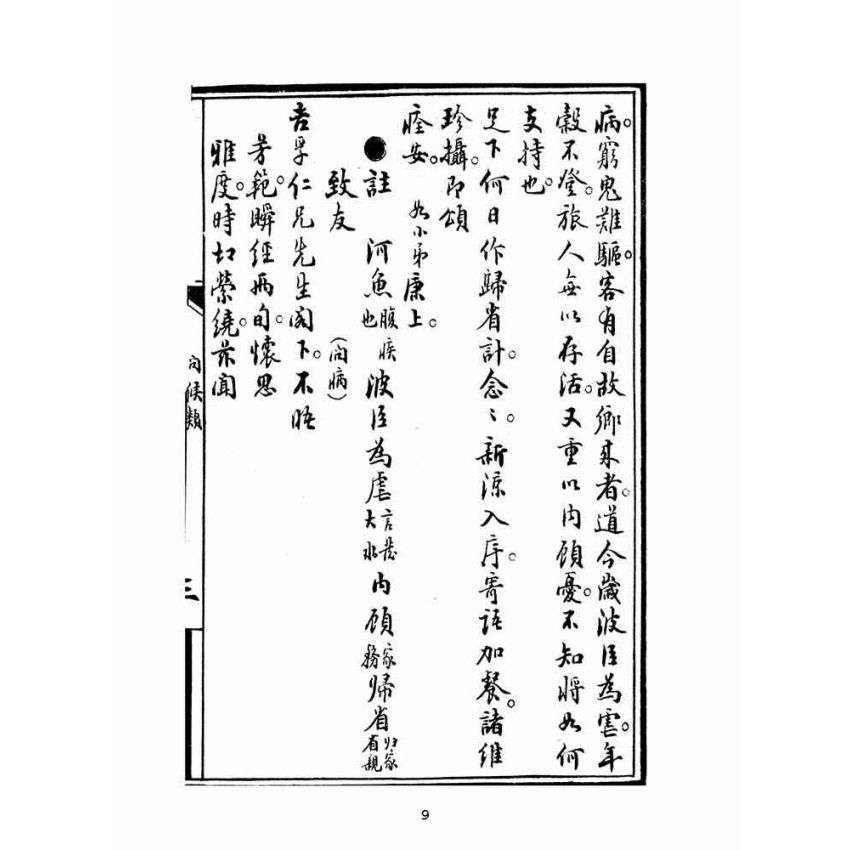 病。窮鬼難驅。客有自故鄉來者。道今歲波臣為虐。年
穀不登。旅人無以存活。又重以內顧憂。不知將如何
支持也。
足下何日作歸省計。念〻。新涼入序。寄語加餐。諸維
珍攝。即頌
痊安。 如小弟康上。
●註 河魚腹疾也 波臣為虐言發大水 內顧家務 歸省归家省親
致友 (問病)
吉孚仁兄先生閣下。不晤
芳範。瞬經兩旬。懷思
雅度。時切縈繞。茲聞
問候類
三
9